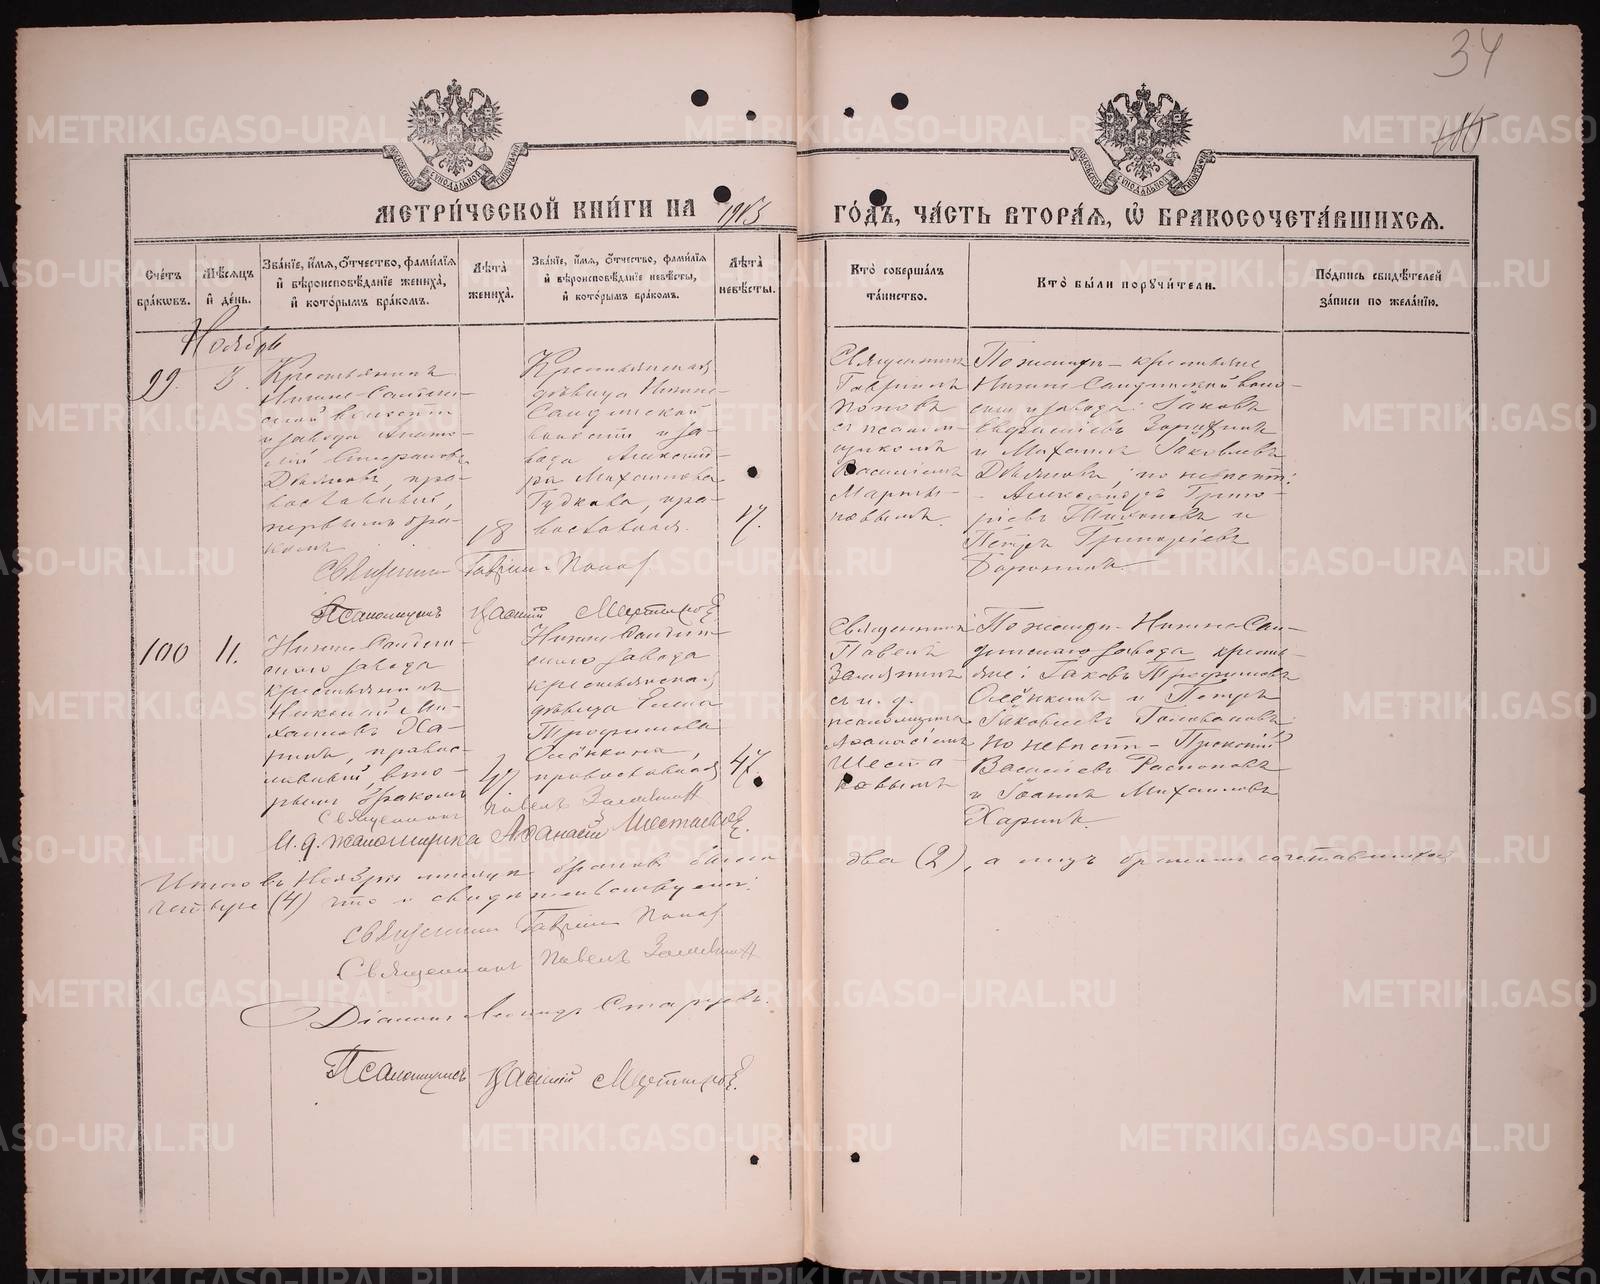 34
МЕТРИ́ЧЕСКОЙ КНИ́ГИ НА 1913 ГО́ДЪ, ЧА́СТЬ ВТОРА́Я, Ѽ БРАКОСОЧЕТА́ВШИХСЯ.
Сче́тъ бра́ковъ.
Мѣ́сяцъ и́ де́нь.
Зва́нїе, и́мя, о́тчество, фами́лїя и́ вѣроисповѣ́данїе жениха́, и́ кото́рымъ бра́комъ.
Лѣ́та жениха́.
Зва́нїе, и́мя, о́тчество, фами́лїя и́ вѣроисповѣ́данїе невѣ́сты, и́ кото́рымъ бра́комъ.
Лѣ́та невѣ́сты.
Кто̀ соверша́лъ та́инство.
Кто̀ бы́ли поручи́тели.
По́дпись свидѣ́телей за́писи по жела́нїю.
Ноябрь
99.
3.
Крестьянинъ
Нижне-Салдин-
ской волости
и завода Анато-
лій Стефановъ
пра-
вославный,
первымъ бра-
комъ
18
Крестьянская
дѣвица Нижне-
Салдинской
волости и за-
вода Александ-
ра Михаилова
Гудкова, пра-
вославная.
17.
Священникъ
Гавріилъ
Поповъ
съ псалом-
щикомъ
Василіемъ
Марты-
новымъ.
По женихѣ - крестьяне
Нижне-Салдинской воло-
сти и завода: Іаковъ
Зорихинъ
и Михаилъ Іаковлевъ
по невѣстѣ:
- Александръ Григо-
ріевъ и
Петръ Григоріевъ
Священникъ Гавріилъ Попов
Псаломщикъ Василій
100
11.
Нижне-Салдин-
скаго завода
крестьянинъ
Николай Ми-
хаиловъ Ха-
ринъ, правос-
лавный, вто-
рымъ бракомъ
47
Нижне-Салдин-
скаго завода
крестьянская
дѣвица Елена
Трофимова
Олёнкина,
православная
47.
Священникъ
Павелъ
съ и. д.
псаломщика
Аѳанасіемъ
Шеста-
ковымъ
По женихѣ - Нижне-Сал-
динскаго завода кресть-
яне: Іаковъ Трофимовъ
Олёнкинъ и Петръ
Іаковлевъ Головановъ:
по невѣстѣ - Прокопій
Василіевъ
и Іоаннъ Михаиловъ
Харинъ.
Священникъ Павелъ
И. д. псаломщика Аѳанасій Шестаковъ.
Итого въ Ноябрѣ мѣсяцѣ браковъ было два (2), а лицъ бракомъ сочетавшихся
четыре (4) что и свидѣтельствуемъ:
Священникъ Гавріилъ Попов
Священникъ Павелъ
Діаконъ Леонидъ Старцевъ.
Псаломщикъ Василій